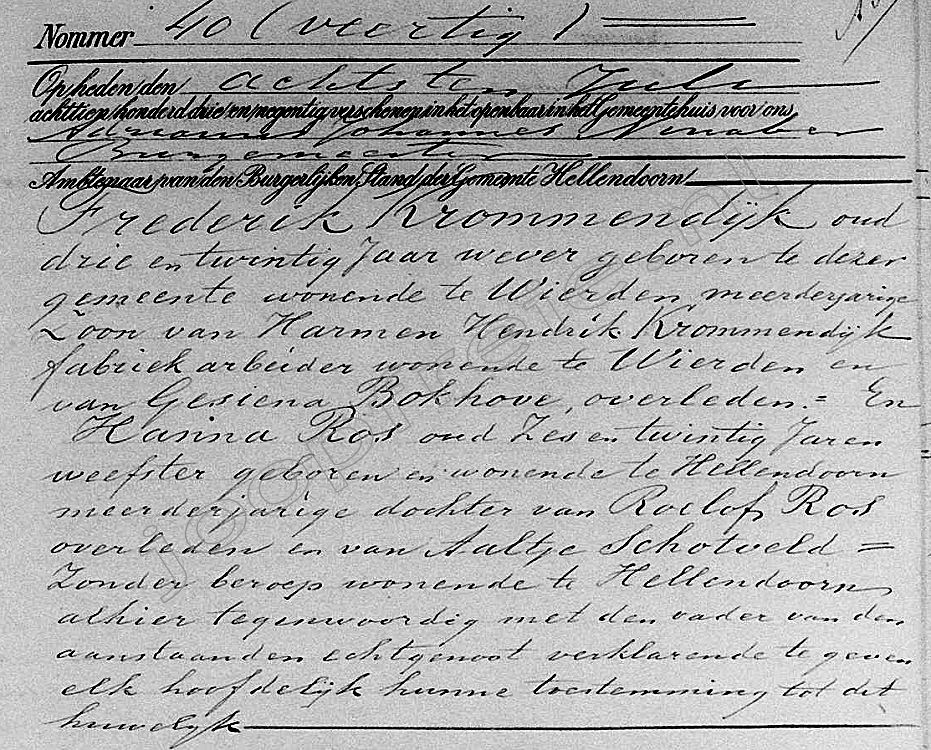 Nommer 40 (veertig)
Op heden den achtsten Juli
achttien honderd drie en negentig verschenen in het openbaar in het Gemeentehuis voor ons
Adrianus Johannes Ninaber
Burgemeester
Ambtenaar van den Burgerlijken Stand der Gemeente Hellendoorn
Frederik Krommendijk oud
drie en twintig Jaar wever geboren te dezer
gemeente wonende te Wierden, meerderjarige
Zoon van Harmen Hendrik Krommendijk
fabriek arbeider wonende te Wierden en
van Gesiena Bokhove, overleden. = En
Hanna Ros oud Zes en twintig Jaren
weefster geboren en wonende te Hellendoorn
meerderjarige dochter van Roelof Ros
overleden en van Aaltje Schotveld =
Zonder beroep wonende te Hellendoorn
alhier tegenwoordig met den vader van den
aanstaanden echtgenoot verklarende te geven
elk hoofdelijk hunne toestemming tot dit
huwelijk